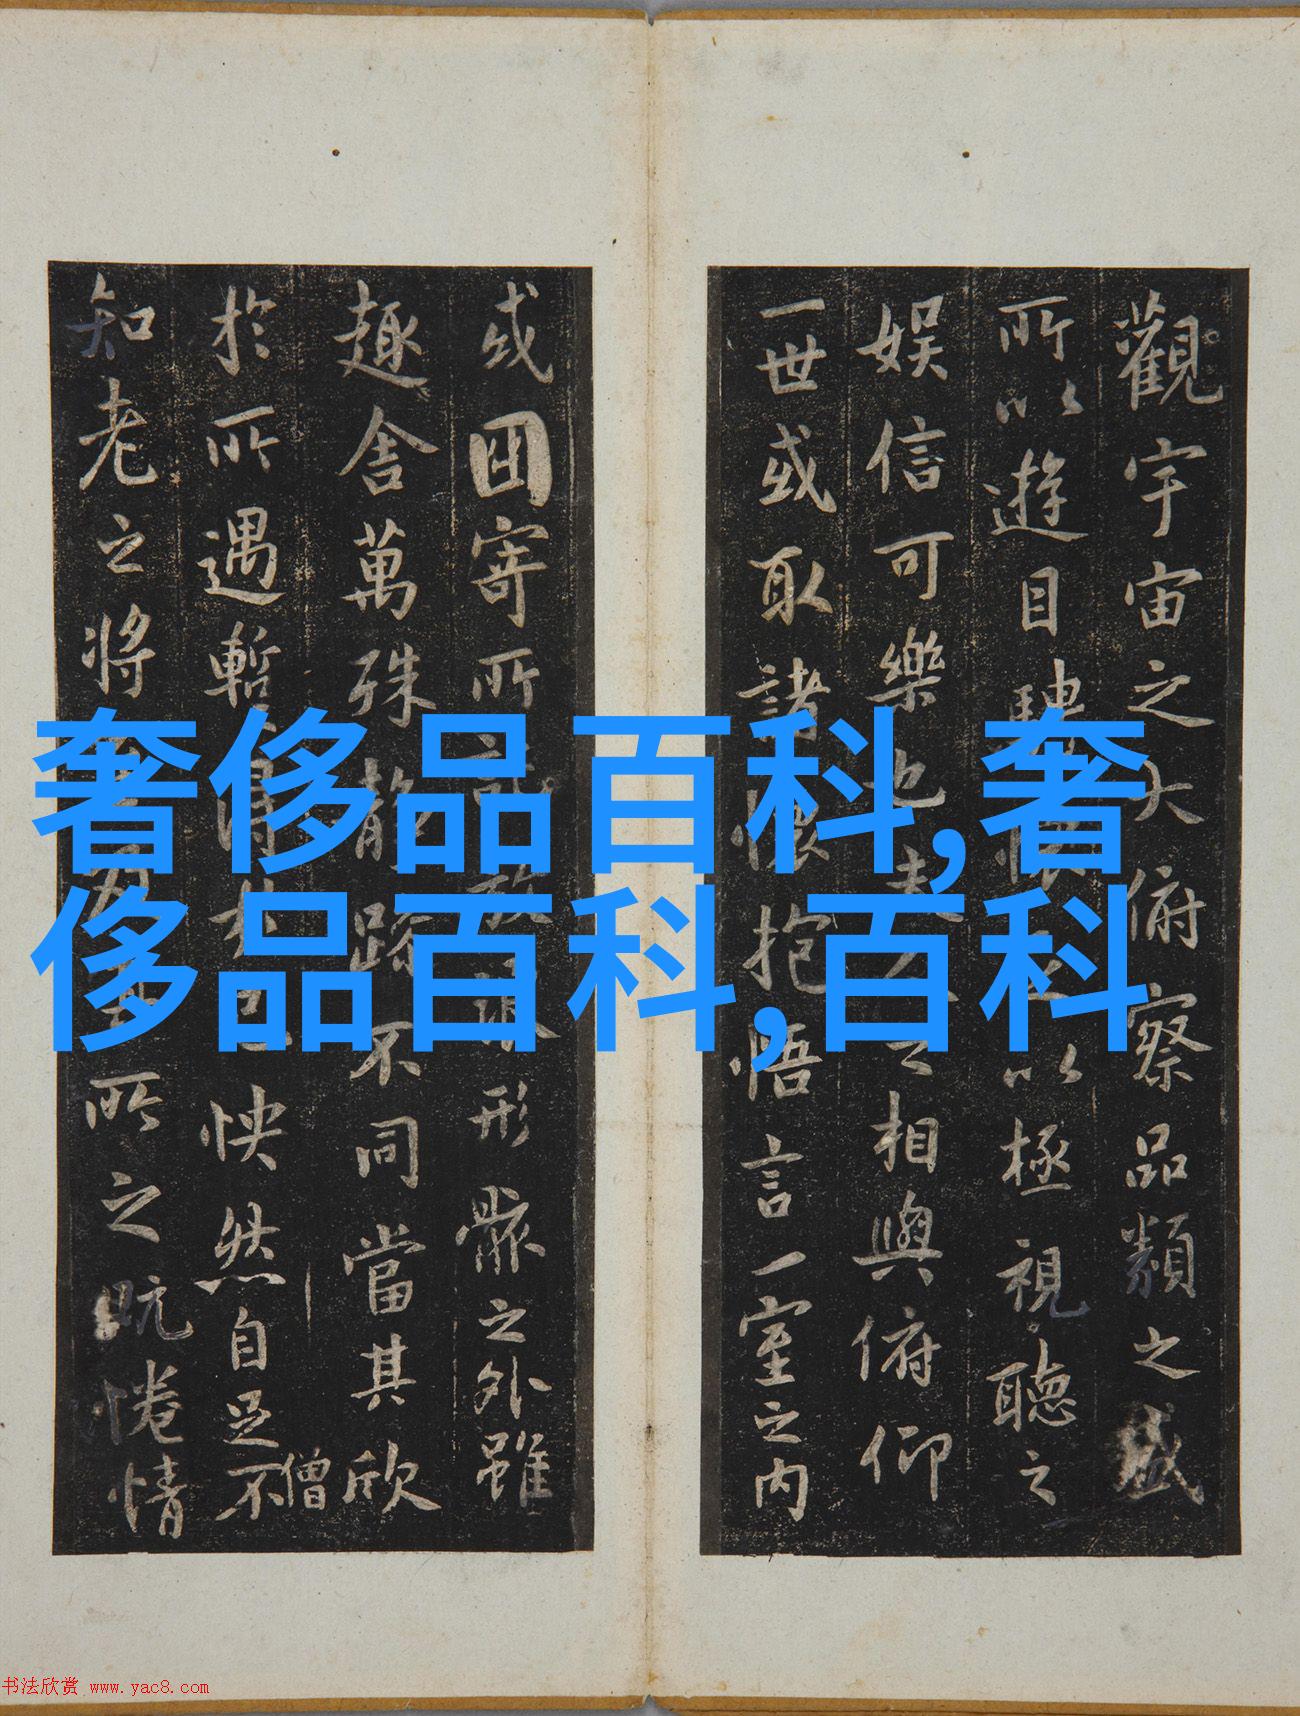 奢侈品百科,奢
侈品百科,百科
觀宇宙之大俯察品類之盛
所以遊目騁懷以極視聽之
娛信可樂也夫之相與俯仰
一世或取諸懷抱悟言一室之內
或因寄所託放浪形骸之外雖
趣舍萬殊靜躁不同當其欣
於所遇暫得於怏然自足不
僧
知老之將所之既惓情
书法欣赏 www.yac8.com